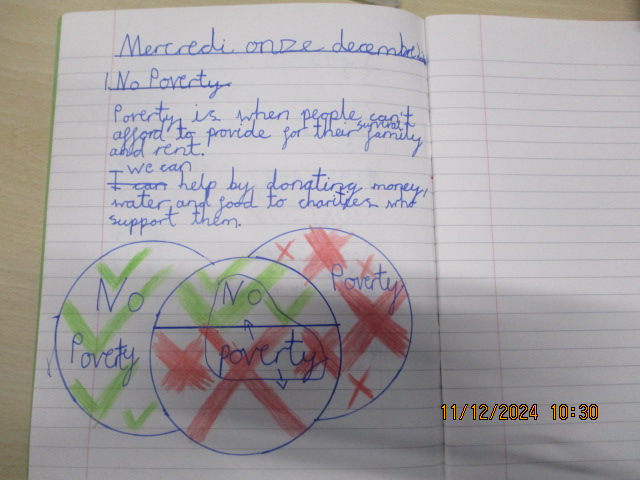 Mercredi onze decembre
1. No Poverty
Poverty is when people can't
afford to provide for their family
and rent.
we can
I can help by donating money,
water and food to charities who
support them.
No
Poverty
No
poverty
Poverty
11/12/2024 10:30